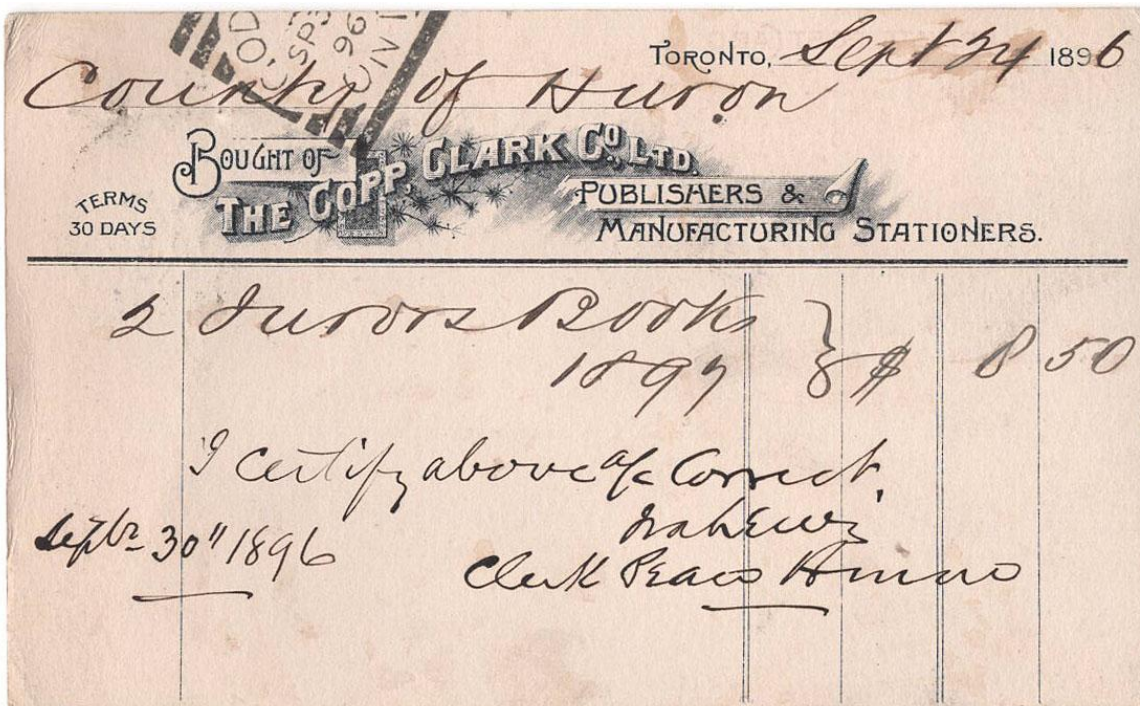 TORONTO, Sept 24 1896
County of Huron
BOUGHT OF
THE COPP, CLARK CO. LTD.
PUBLISHERS &
MANUFACTURING STATIONERS.
TERMS
30 DAYS
2 Jurors Books
1897 $ 8 50
I certify above a/c Correct,
Septbr 30" 1896
Clerk Peace Huron